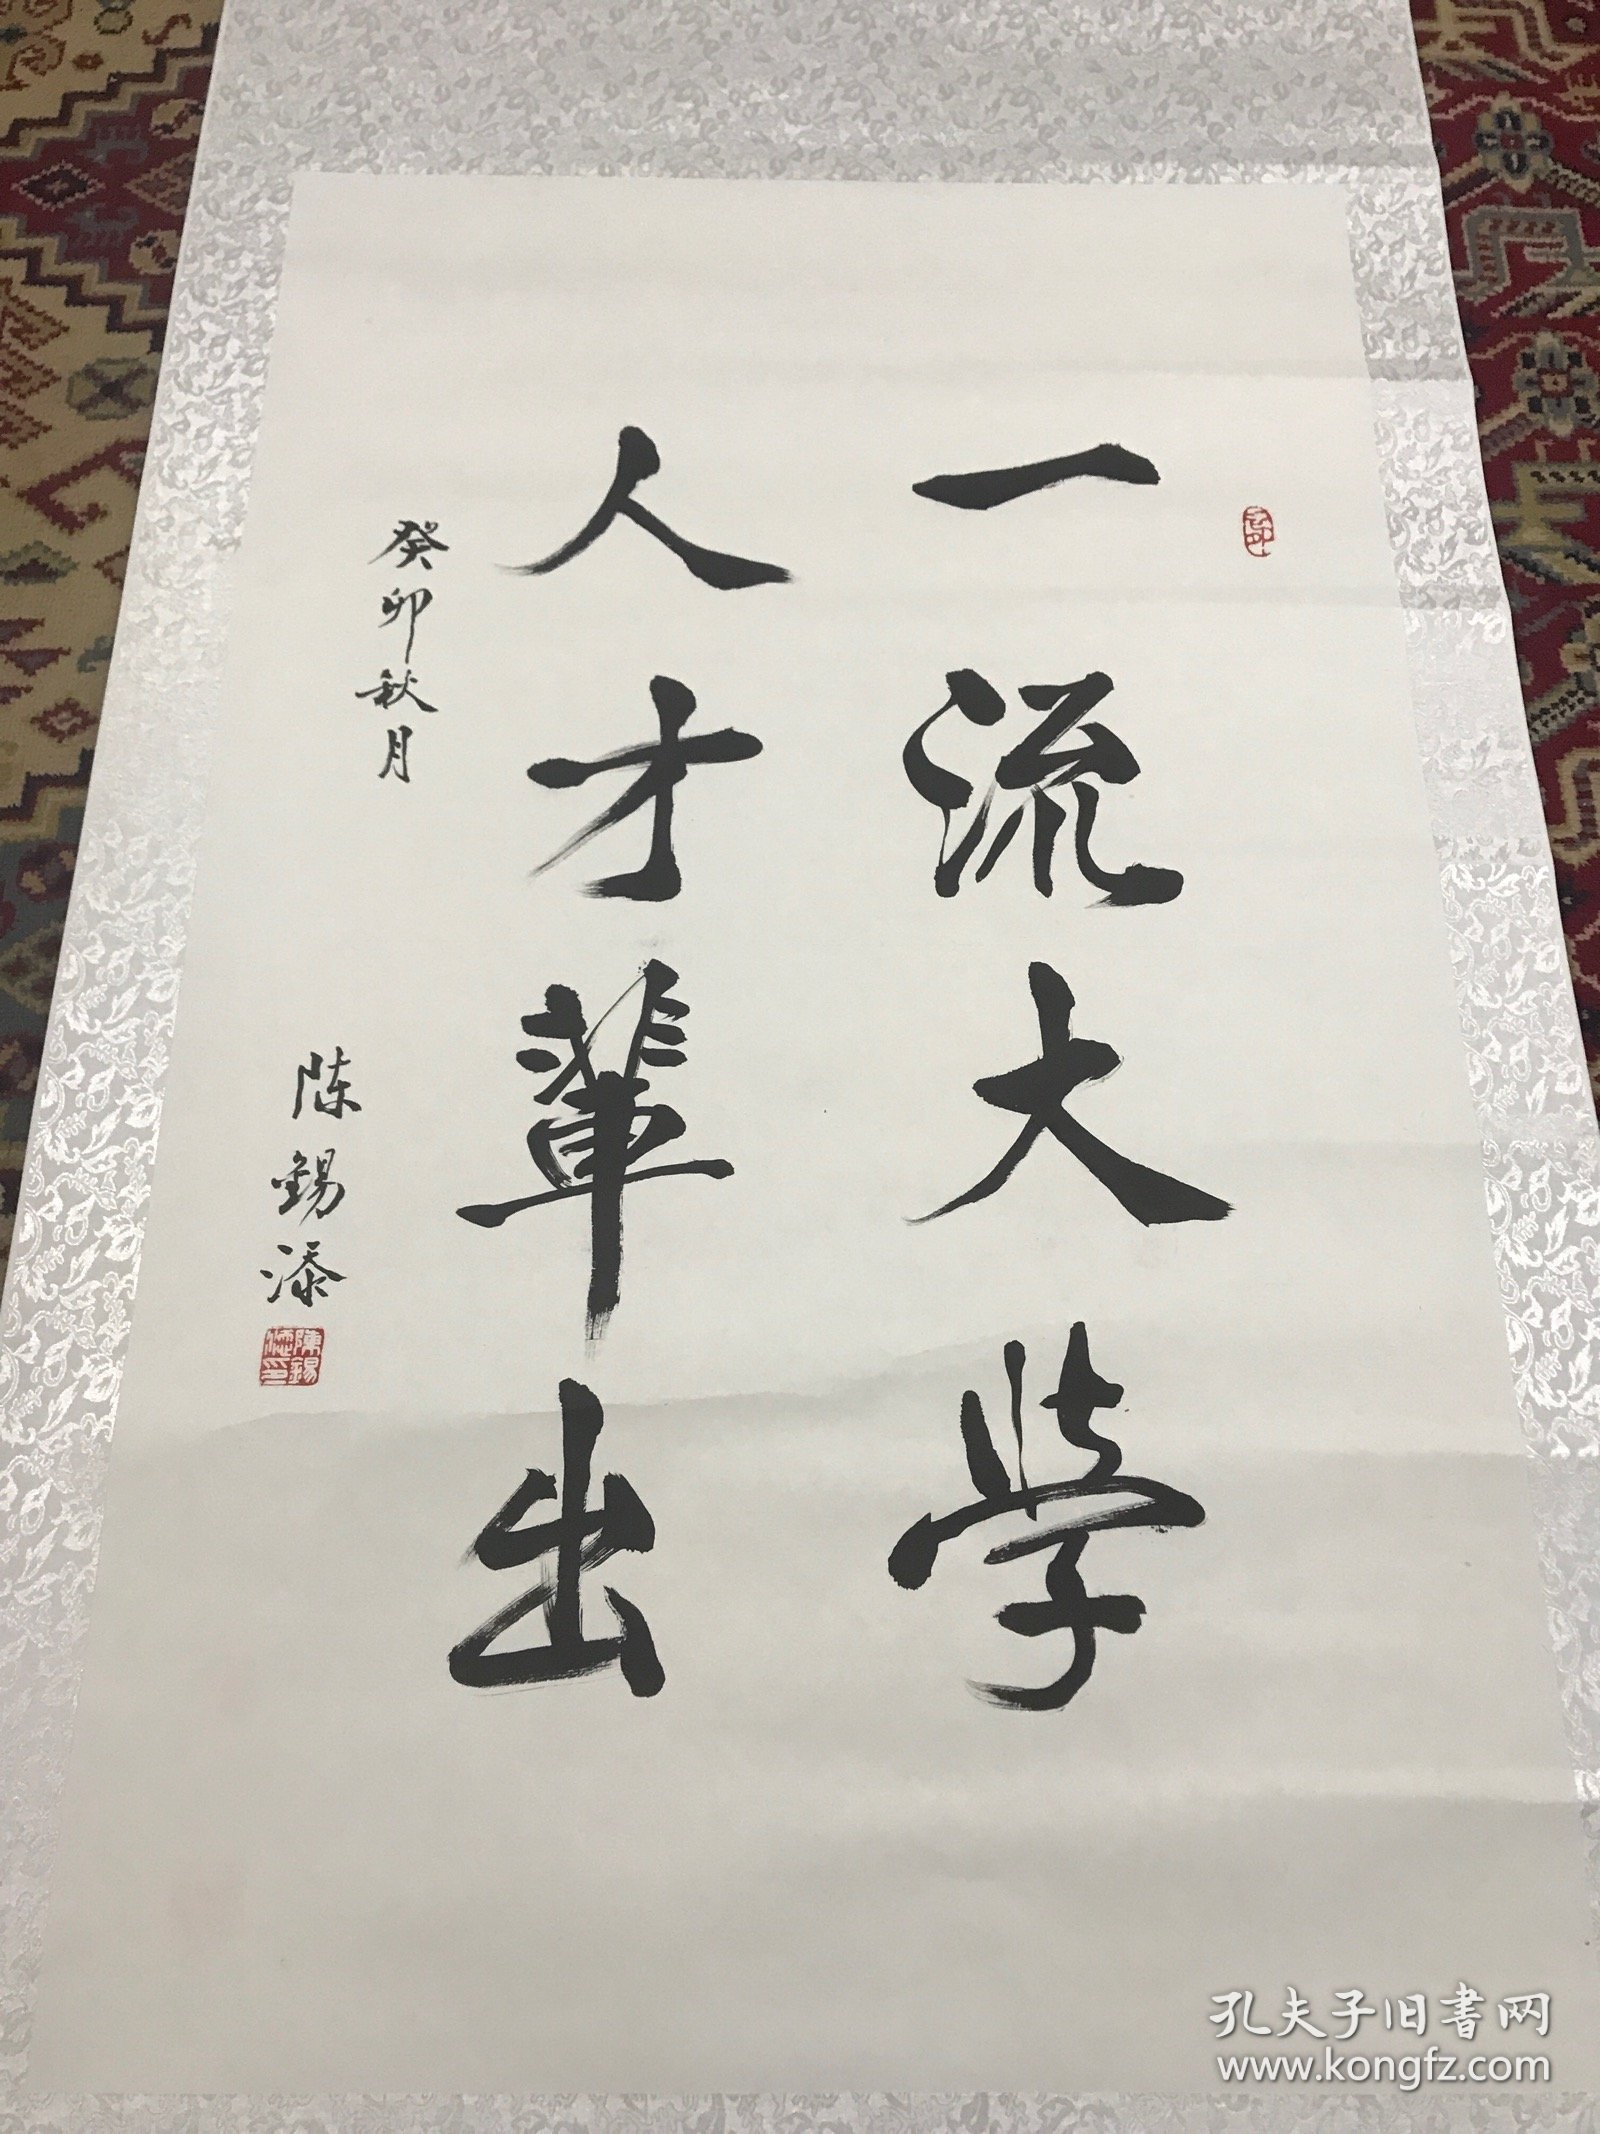 一流大学
人才輩出
癸卯秋月
陈錫添
陳錫添印
孔夫子旧書网
www.kongfz.com